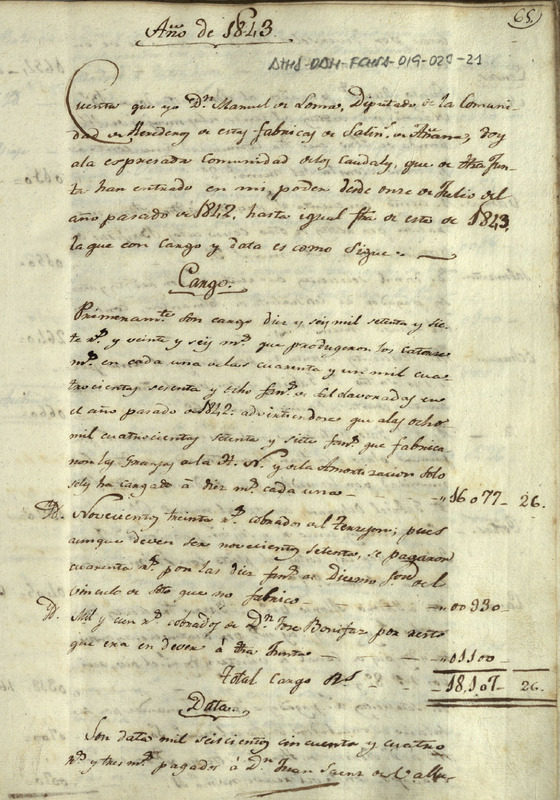 65
Año de 1843.
AHHS-DDH-FCHAS-019-023-21
Cuenta que yo Dn Manuel de Loma, Diputado de la Comuni-
dad de Herederos de estas fabricas de Salins. de Añana, doy
ala espresada Comunidad delos Caudals, que de dha Jun-
ta han entrado en mi poder desde once de Julio del
año pasado de 1842. hasta igual fha de este de 1843,
la que con cargo y data es como sigue.
Cargo.
Primeramte. son cargo diez y seis mil setenta y sie-
te rs. y veinte y seis ms. que produgeron los catorce
ms. en cada una delas cuarenta y un mil cua-
trocientas sesenta y ocho fans. de Sal elavoradas en
el año pasado de 1842. advirtiendose que alas ocho
mil cuatrocientas setenta y siete fans. que fabrica
ron las Granjas dela H. N. y dela Amortizacion solo
seles ha cargado á diez ms. cada una 16077 26.
Id. Novecientos treinta rs. cobrados del Terrejon; pues
aunque deven ser novecientos setenta, se pagaron
cuarenta rs. por las diez fans. de Diezmo del
vinculo de Soto que no fabrico 00930
Id. Mil y cien rs. cobrados de Dn Jose Bonifaz por resto
que era en dever á dha Junta 01100
Total Cargo Rs 18,107 26.
Data.
Son data mil seiscientos cincuenta y cuatro
rs. y tres ms. pagados á Dn Juan Saenz de